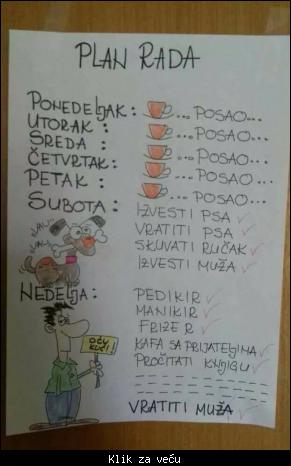 PLAN RADA
PONEDELJAK: ... POSAO...
UTORAK : ... POSAO...
SREDA : ... POSAO...
ČETVRTAK: ... POSAO...
PETAK : ... POSAO...
SUBOTA : IZVESTI PSA
VRATITI PSA
SKUVATI RUČAK
IZVESTI MUŽA
AV! AV!
NEDELJA: PEDIKIR
MANIKIR
FRIZER
KAFA SA PRIJATELJIMA
PROČITATI KNJIGU
OĆU KUĆI!
VRATITI MUŽA
Klik za veću